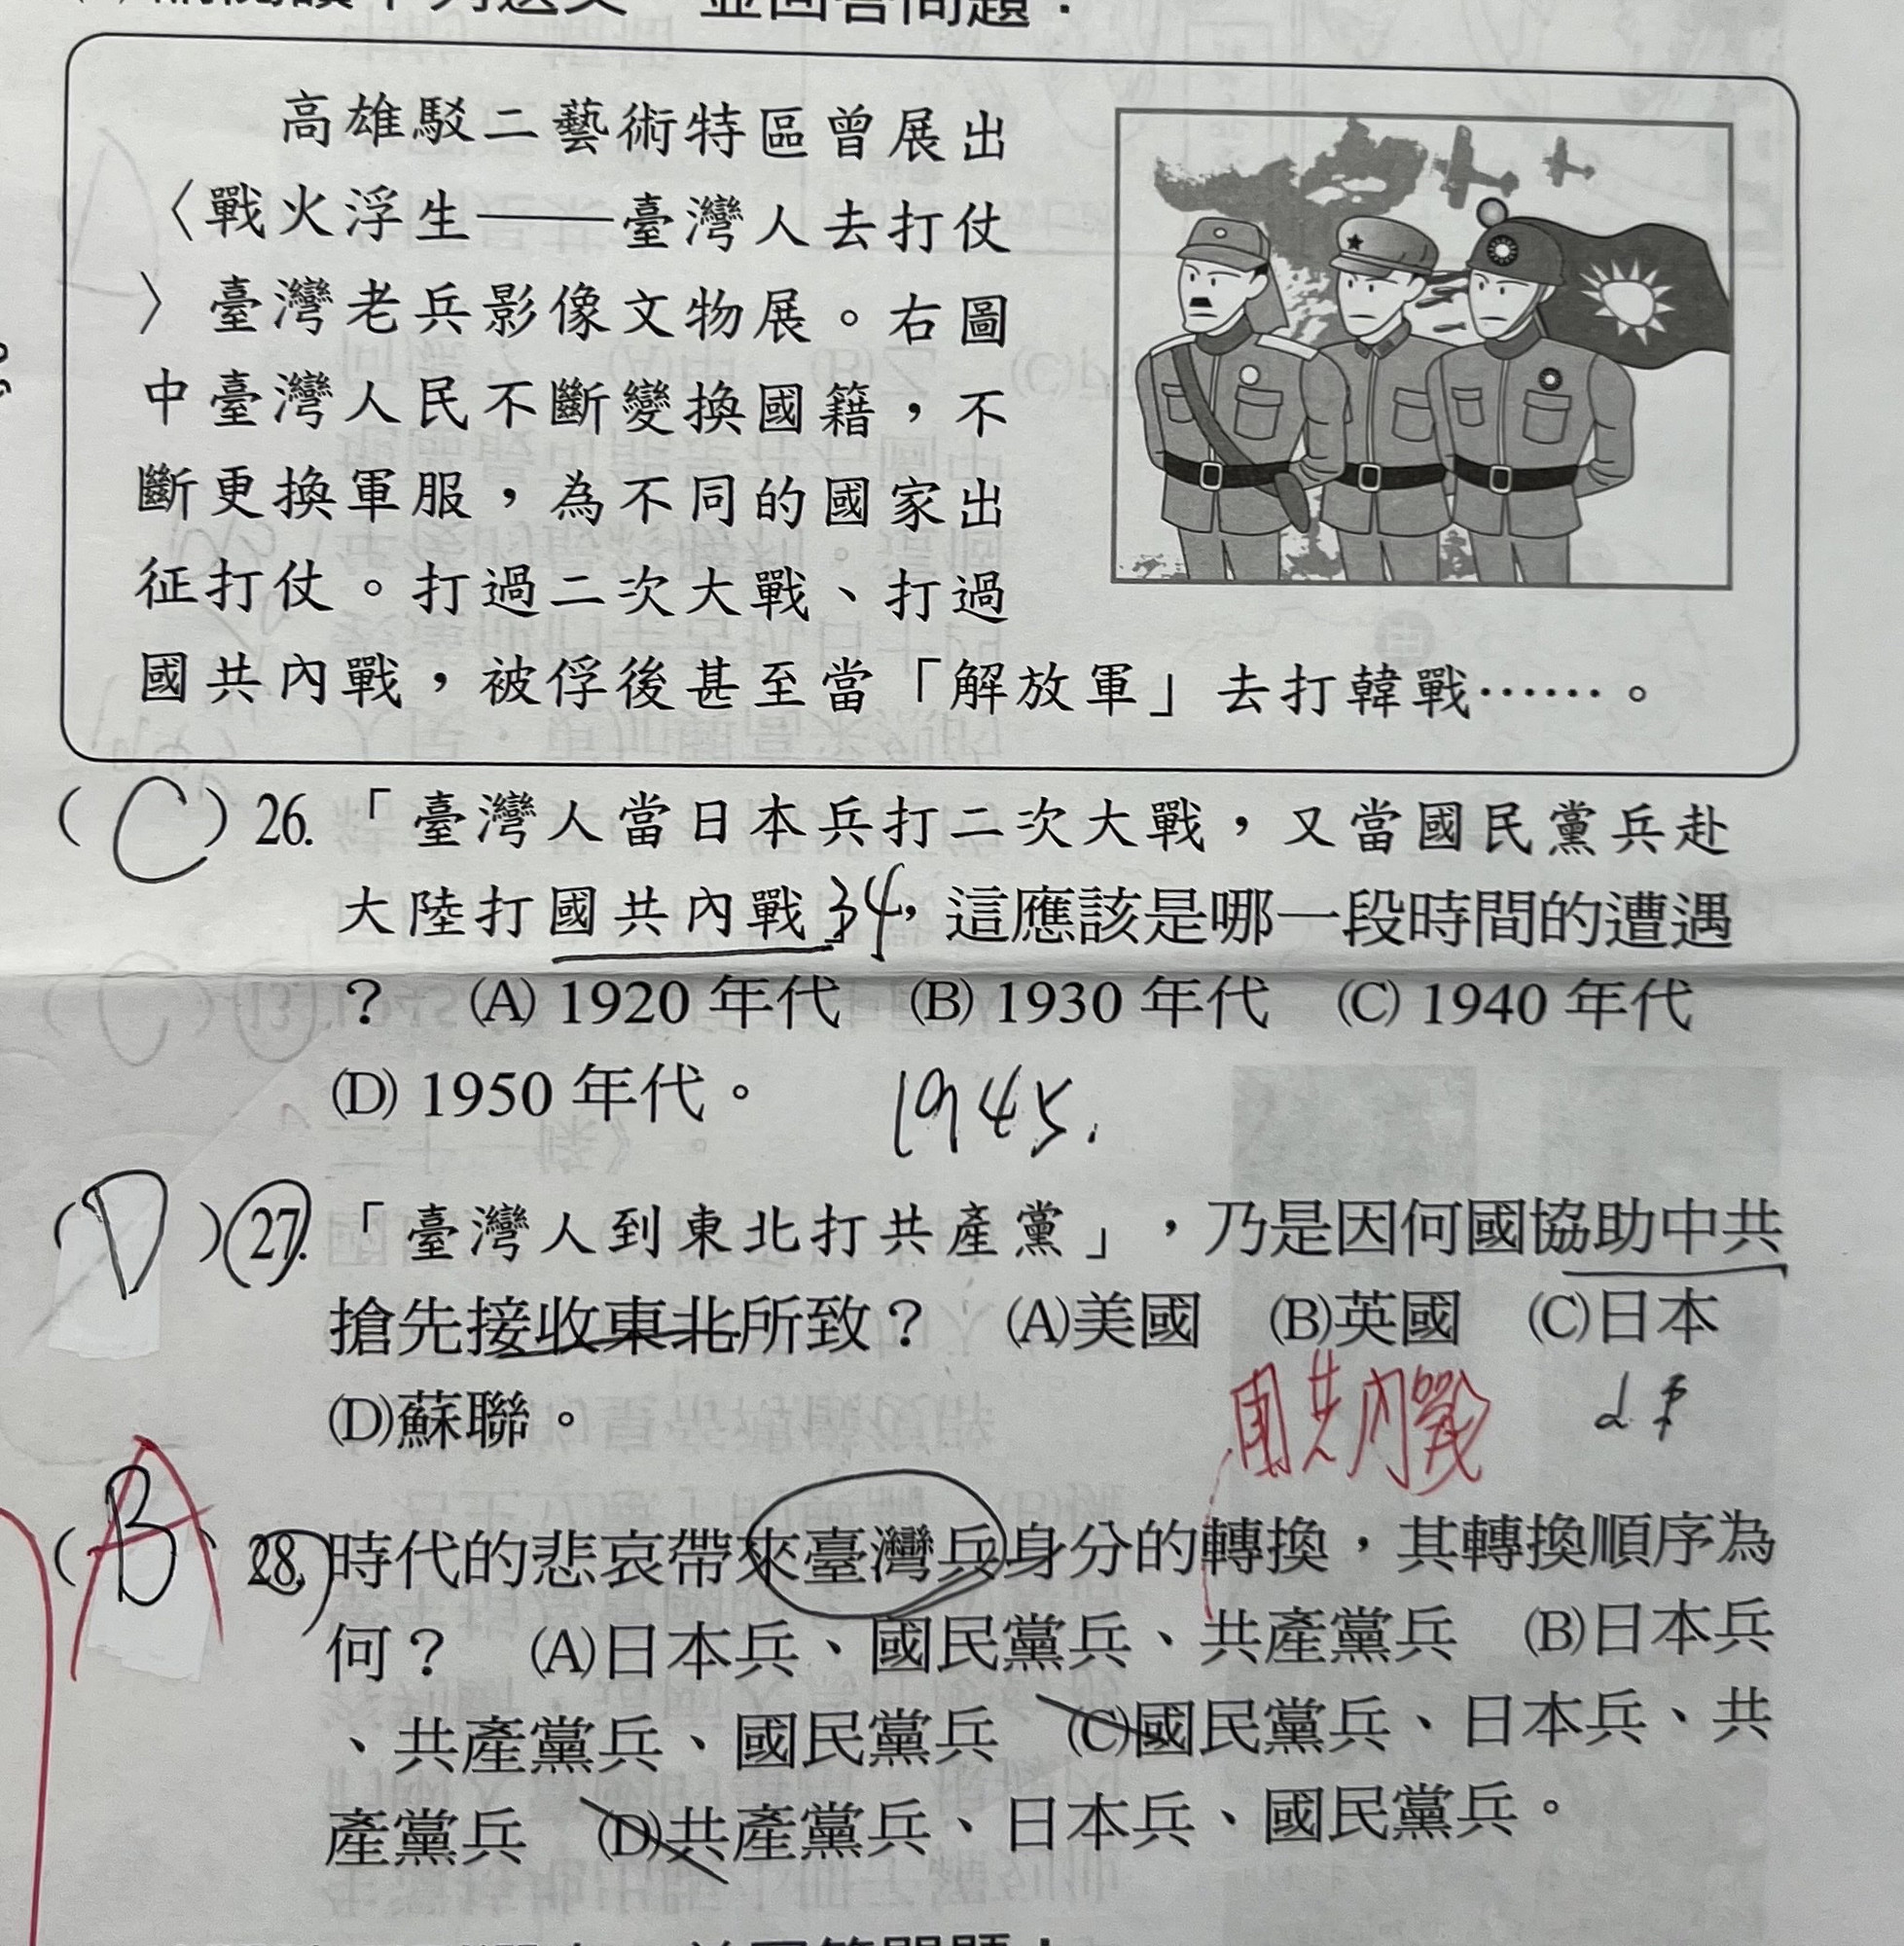 並回答問題：
高雄駁二藝術特區曾展出
〈戰火浮生——臺灣人去打仗
〉臺灣老兵影像文物展。右圖
中臺灣人民不斷變換國籍，不
斷更換軍服，為不同的國家出
征打仗。打過二次大戰、打過
國共內戰，被俘後甚至當「解放軍」去打韓戰……。
( C ) 26. 「臺灣人當日本兵打二次大戰，又當國民黨兵赴
大陸打國共內戰」34，這應該是哪一段時間的遭遇
？ (A) 1920 年代 (B) 1930 年代 (C) 1940 年代
(D) 1950 年代。 1945.
( D ) 27. 「臺灣人到東北打共產黨」，乃是因何國協助中共
搶先接收東北所致？ (A)美國 (B)英國 (C)日本
(D)蘇聯。 國共內戰
( B A ) 28. 時代的悲哀帶來臺灣兵身分的轉換，其轉換順序為
何？ (A)日本兵、國民黨兵、共產黨兵 (B)日本兵
、共產黨兵、國民黨兵 (C)國民黨兵、日本兵、共
產黨兵 (D)共產黨兵、日本兵、國民黨兵。